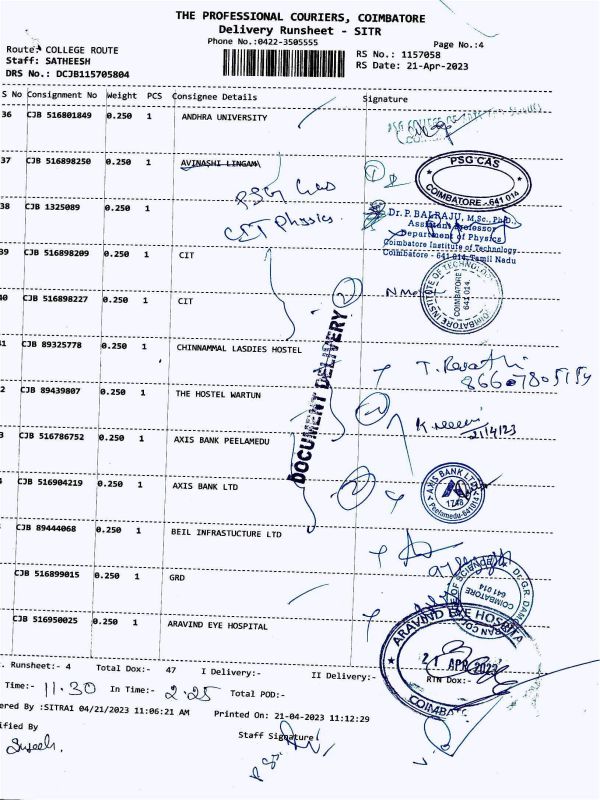 THE PROFESSIONAL COURIERS, COIMBATORE
Delivery Runsheet - SITR
Phone No.:0422-3505555
Page No.:4
Route: COLLEGE ROUTE
RS No.: 1157058
Staff: SATHEESH
RS Date: 21-Apr-2023
DRS No.: DCJB115705804
S No Consignment No Weight PCS Consignee Details Signature
36 CJB 516801849 0.250 1 ANDHRA UNIVERSITY
37 CJB 516898250 0.250 1 AVINASHI LINGAM
PSG CAS
COIMBATORE - 641 014
PSG Cas
38 CJB 1325089 0.250 1
CIT Physics
Dr. P. BALRAJU, M.Sc., Ph.D.,
Assistant Professor
Department of Physics
Coimbatore Institute of Technology
Coimbatore - 641 014, Tamil Nadu
39 CJB 516898209 0.250 1 CIT
COIMBATORE INSTITUTE OF TECHNOLOGY
COIMBATORE
641 014.
40 CJB 516898227 0.250 1 CIT
DOCUMENT DELIVERY
41 CJB 89325778 0.250 1 CHINNAMMAL LASDIES HOSTEL
2 CJB 89439807 0.250 1 THE HOSTEL WARTUN
21/4/23
3 CJB 516786752 0.250 1 AXIS BANK PEELAMEDU
CJB 516904219 0.250 1 AXIS BANK LTD
AXIS BANK LTD
1748
Peelamedu-641014
CJB 89444068 0.250 1 BEIL INFRASTUCTURE LTD
CJB 516899015 0.250 1 GRD
COIMBATORE
641 014
CJB 516950025 0.250 1 ARAVIND EYE HOSPITAL
ARAVIND EYE HOSPITAL
21 APR 2023
COIMBATORE
. Runsheet:- 4 Total Dox:- 47 I Delivery:- II Delivery:- RTN Dox:-
Time:- 11.30 In Time:- 2.25 Total POD:-
ered By :SITRA1 04/21/2023 11:06:21 AM Printed On: 21-04-2023 11:12:29
ified By
Staff Signature